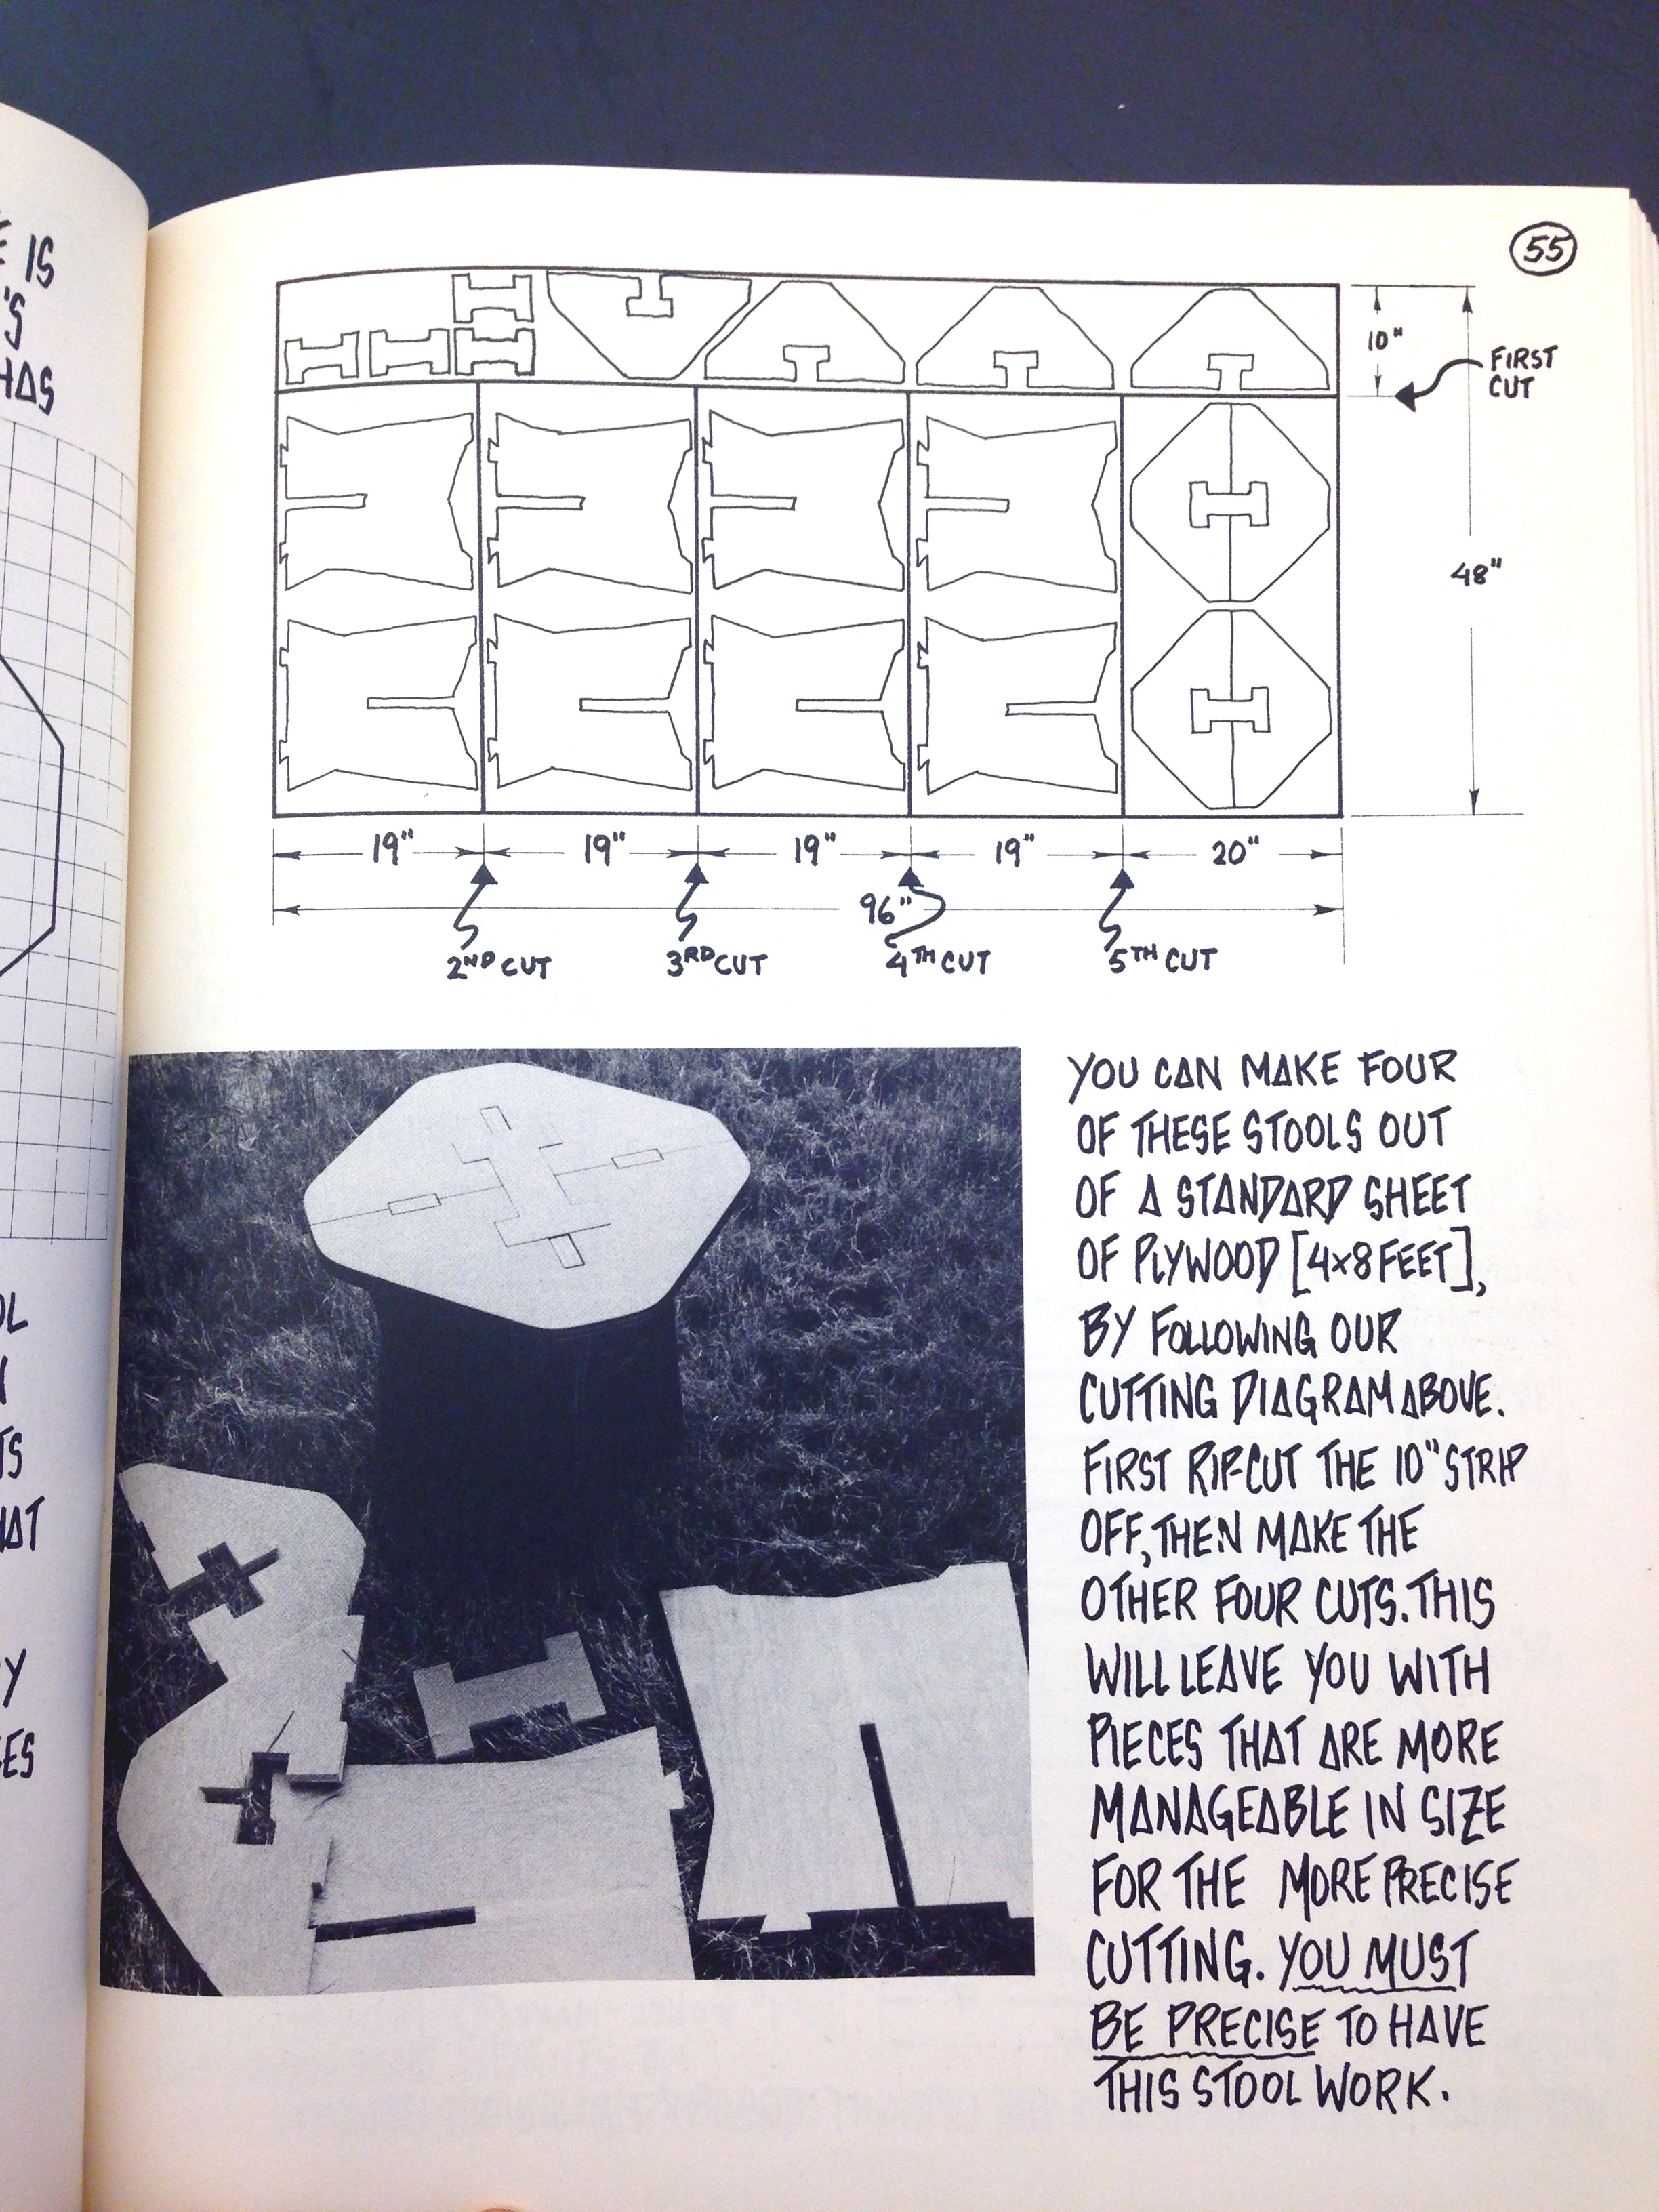 IS
'S
HAS
55
10"
FIRST
CUT
48"
19" 19" 19" 19" 20"
96"
2ND CUT 3RD CUT 4TH CUT 5TH CUT
YOU CAN MAKE FOUR
OF THESE STOOLS OUT
OF A STANDARD SHEET
OF PLYWOOD [4x8 FEET],
BY FOLLOWING OUR
CUTTING DIAGRAM ABOVE.
FIRST RIP-CUT THE 10" STRIP
OFF, THEN MAKE THE
OTHER FOUR CUTS. THIS
WILL LEAVE YOU WITH
PIECES THAT ARE MORE
MANAGEABLE IN SIZE
FOR THE MORE PRECISE
CUTTING. YOU MUST
BE PRECISE TO HAVE
THIS STOOL WORK.